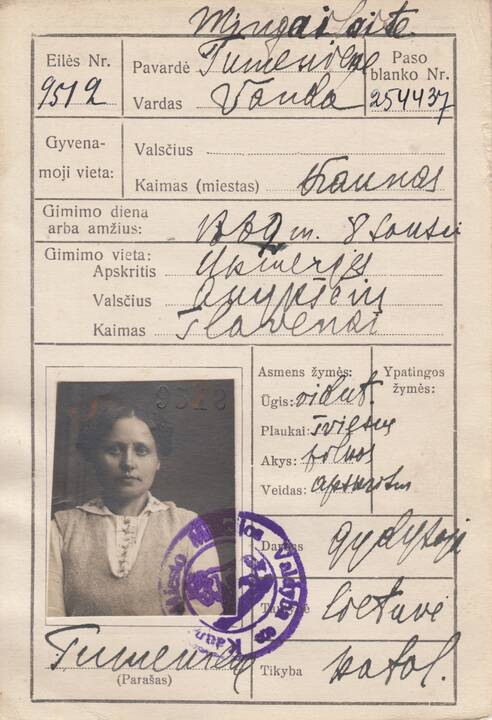 Mingailaitė
Eilės Nr.
9512
Pavardė Tumėnienė
Vardas Vanda
Paso
blanko Nr.
254437
Gyvena-
moji vieta:
Valsčius
Kaimas (miestas) Kaunas
Gimimo diena
arba amžius: 1889 m. 8 sausio
Gimimo vieta:
Apskritis Ukmergės
Valsčius Anykščių
Kaimas
9518
Asmens žymės:
Ūgis: vidut.
Plaukai: šviesūs
Akys: pilkos
Veidas: apskritus
Ypatingos
žymės:
Miesto Valdyba
Kauno
Darbas gydytoja
Tautybė lietuvė
Tikyba katal.
Tumėnienė
(Parašas)